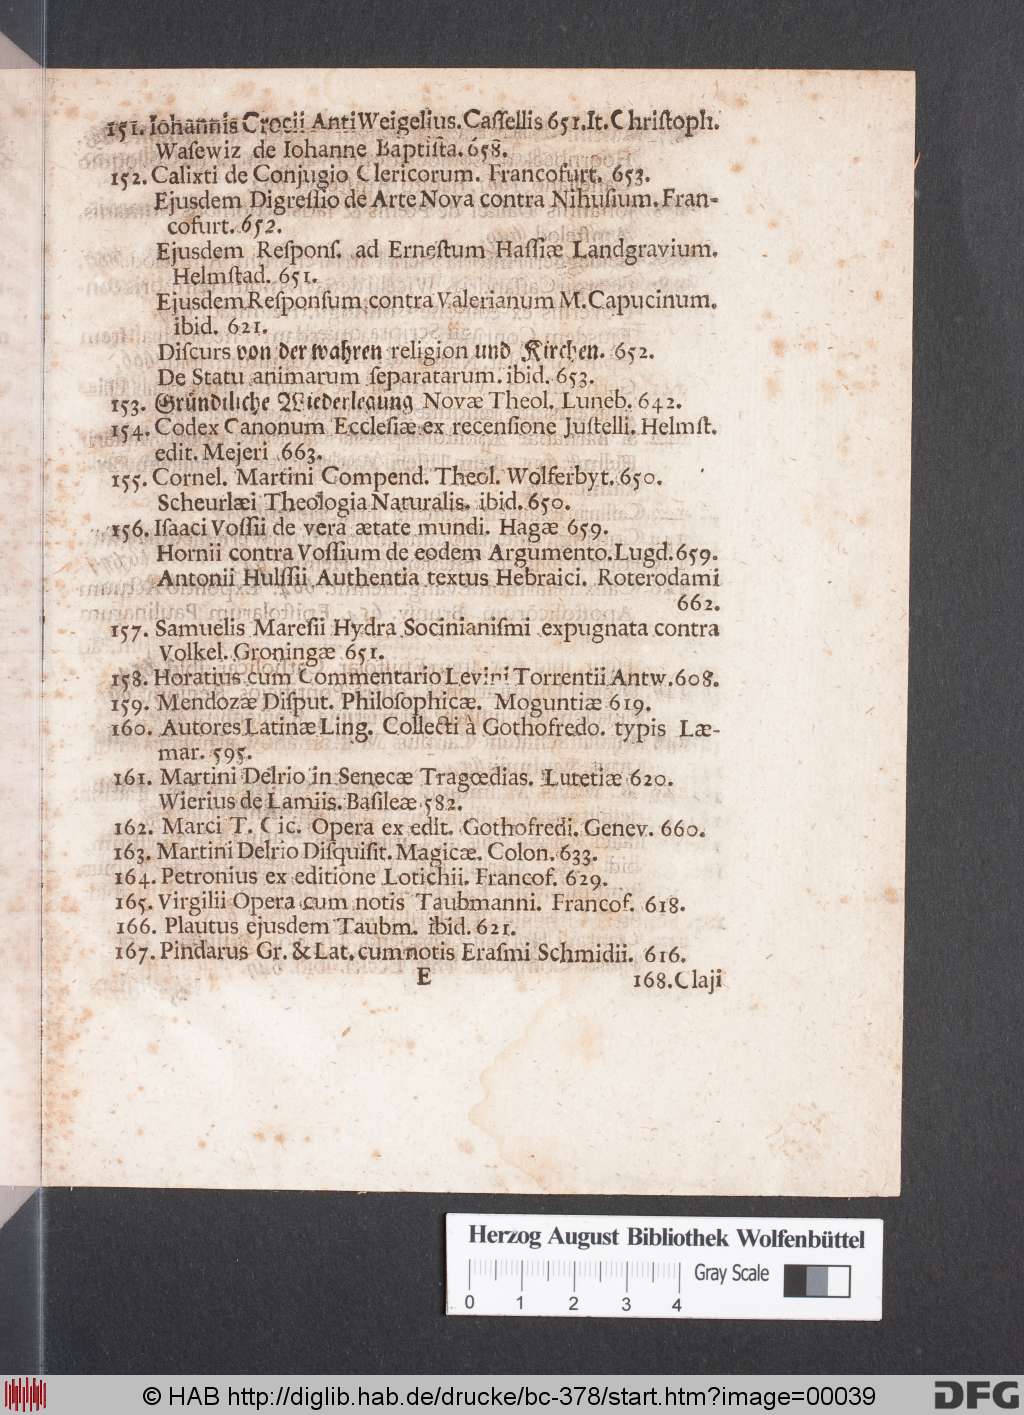 151. Iohannis Crocii AntiWeigelius. Caſſellis 651. It. Chriſtoph.
Waſewiz de Iohanne Baptiſta. 658.
152. Calixti de Conjugio Clericorum. Francofurt. 653.
Ejusdem Digreſſio de Arte Nova contra Nihuſium. Fran-
cofurt. 652.
Ejusdem Reſponſ. ad Erneſtum Haſſiæ Landgravium.
Helmſtad. 651.
Ejusdem Reſponſum contra Valerianum M. Capucinum.
ibid. 621.
Diſcurs von der wahren religion und Kirchen. 652.
De Statu animarum ſeparatarum. ibid. 653.
153. Gründtliche Wiederlegung Novæ Theol. Luneb. 642.
154. Codex Canonum Eccleſiæ ex recenſione Juſtelli. Helmſt.
edit. Mejeri 663.
155. Cornel. Martini Compend. Theol. Wolferbyt. 650.
Scheurlæi Theologia Naturalis. ibid. 650.
156. Iſaaci Voſſii de vera ætate mundi. Hagæ 659.
Hornii contra Voſſium de eodem Argumento. Lugd. 659.
Antonii Hulſſii Authentia textus Hebraici. Roterodami
662.
157. Samuelis Mareſii Hydra Socinianiſmi expugnata contra
Volkel. Groningæ 651.
158. Horatius cum Commentario Levini Torrentii Antw. 608.
159. Mendozæ Diſput. Philoſophicæ. Moguntiæ 619.
160. Autores Latinæ Ling. Collecti à Gothofredo. typis Læ-
mar. 595.
161. Martini Delrio in Senecæ Tragœdias. Lutetiæ 620.
Wierius de Lamiis. Baſileæ 582.
162. Marci T. Cic. Opera ex edit. Gothofredi. Genev. 660.
163. Martini Delrio Diſquiſit. Magicæ. Colon. 633.
164. Petronius ex editione Lotichii. Francof. 629.
165. Virgilii Opera cum notis Taubmanni. Francof. 618.
166. Plautus ejusdem Taubm. ibid. 621.
167. Pindarus Gr. & Lat. cum notis Eraſmi Schmidii. 616.
E 168. Claji
Herzog August Bibliothek Wolfenbüttel
Gray Scale
0 1 2 3 4
© HAB http://diglib.hab.de/drucke/bc-378/start.htm?image=00039
DFG